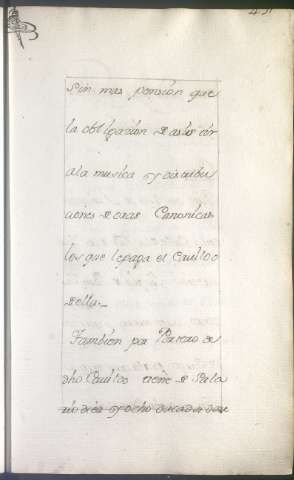 sin mas pension que
la obligacion de asistir
a la musica y distribu
ciones de oras Canonicas
los que le paga el Cavildo
de ella.
Tambien por Decreto de
dho Cavildo tiene de Sala
rio diez y ocho